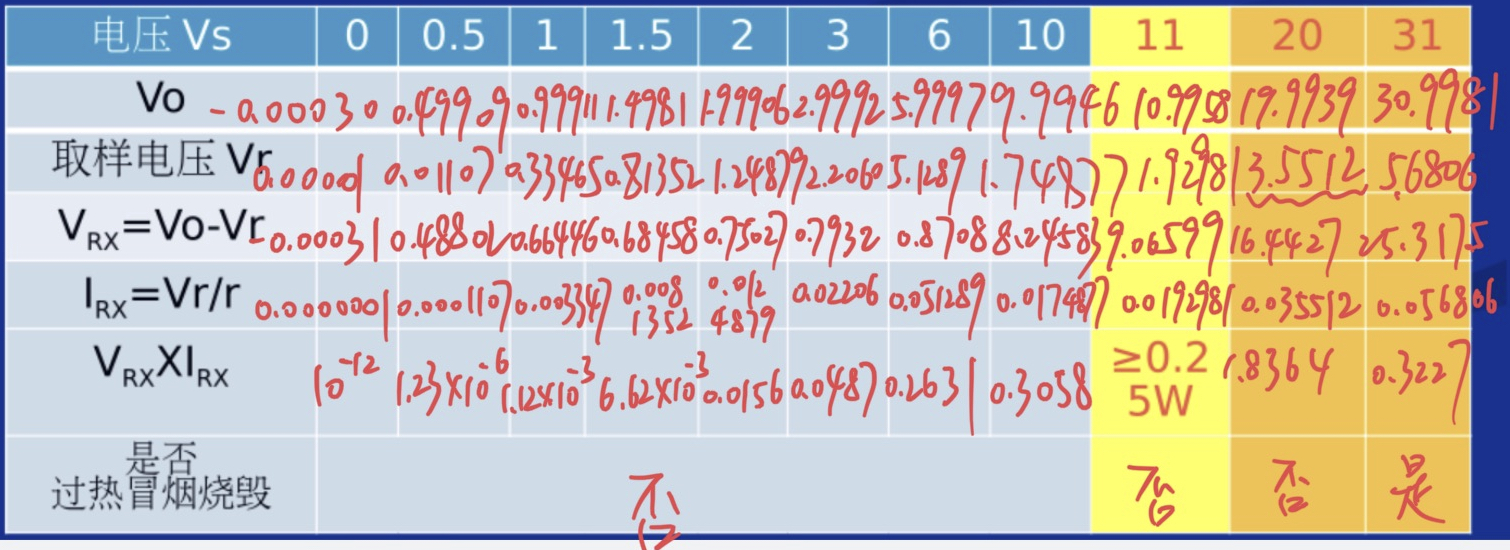 电压 Vs 0 0.5 1 1.5 2 3 6 10 11 20 31
Vo -0.00030 0.49909 0.99911 1.4981 1.99906 2.9992 5.9997 9.9946 10.9958 19.9939 30.9981
取样电压 Vr 0.00001 0.01107 0.33465 0.81352 1.24879 2.2060 5.1289 1.74877 1.92981 3.5512 5.6806
V_RX=Vo-Vr -0.00031 0.48802 0.66446 0.68458 0.75027 0.7932 0.8708 8.24583 9.06599 16.4427 25.3175
I_RX=Vr/r 0.0000001 0.0001107 0.003347 0.008 0.012 0.02206 0.051289 0.0174877 0.0192981 0.035512 0.056806
1352 4879
V_RX X I_RX 10^-12 1.23×10^-6 1.12×10^-3 6.62×10^-3 0.0156 0.0487 0.2631 0.3058 ≥0.2 1.8364 0.3227
5W
是否
过热冒烟烧毁 否 否 否 是